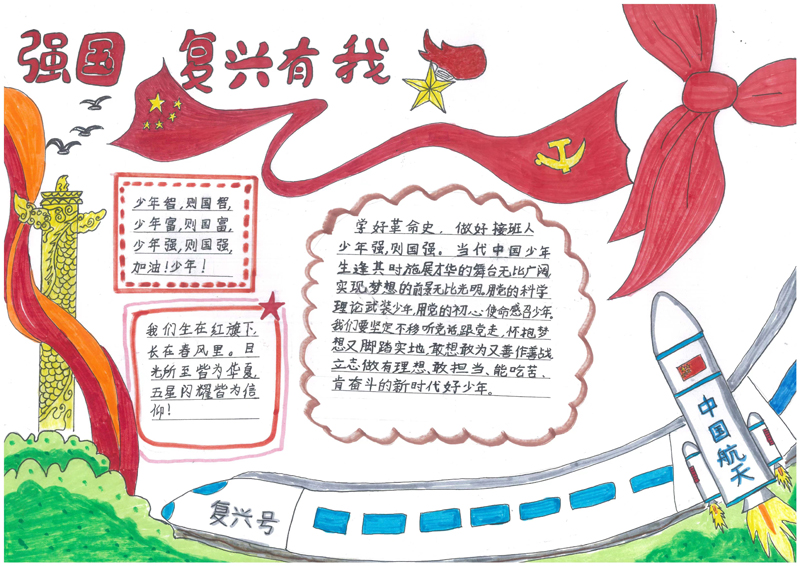 强国 复兴有我
少年智,则国智,
少年富,则国富,
少年强,则国强,
加油!少年!
我们生在红旗下,
长在春风里。目
光所至皆为华夏,
五星闪耀皆为信
仰!
学好革命史,做好接班人
少年强,则国强。当代中国少年
生逢其时施展才华的舞台无比广阔,
实现梦想的前景无比光明,用党的科学
理论武装少年,用党的初心使命感召少年,
我们要坚定不移听党话跟党走,怀抱梦
想又脚踏实地,敢想敢为又善作善战
立志做有理想、敢担当、能吃苦、
肯奋斗的新时代好少年。
复兴号
中国航天